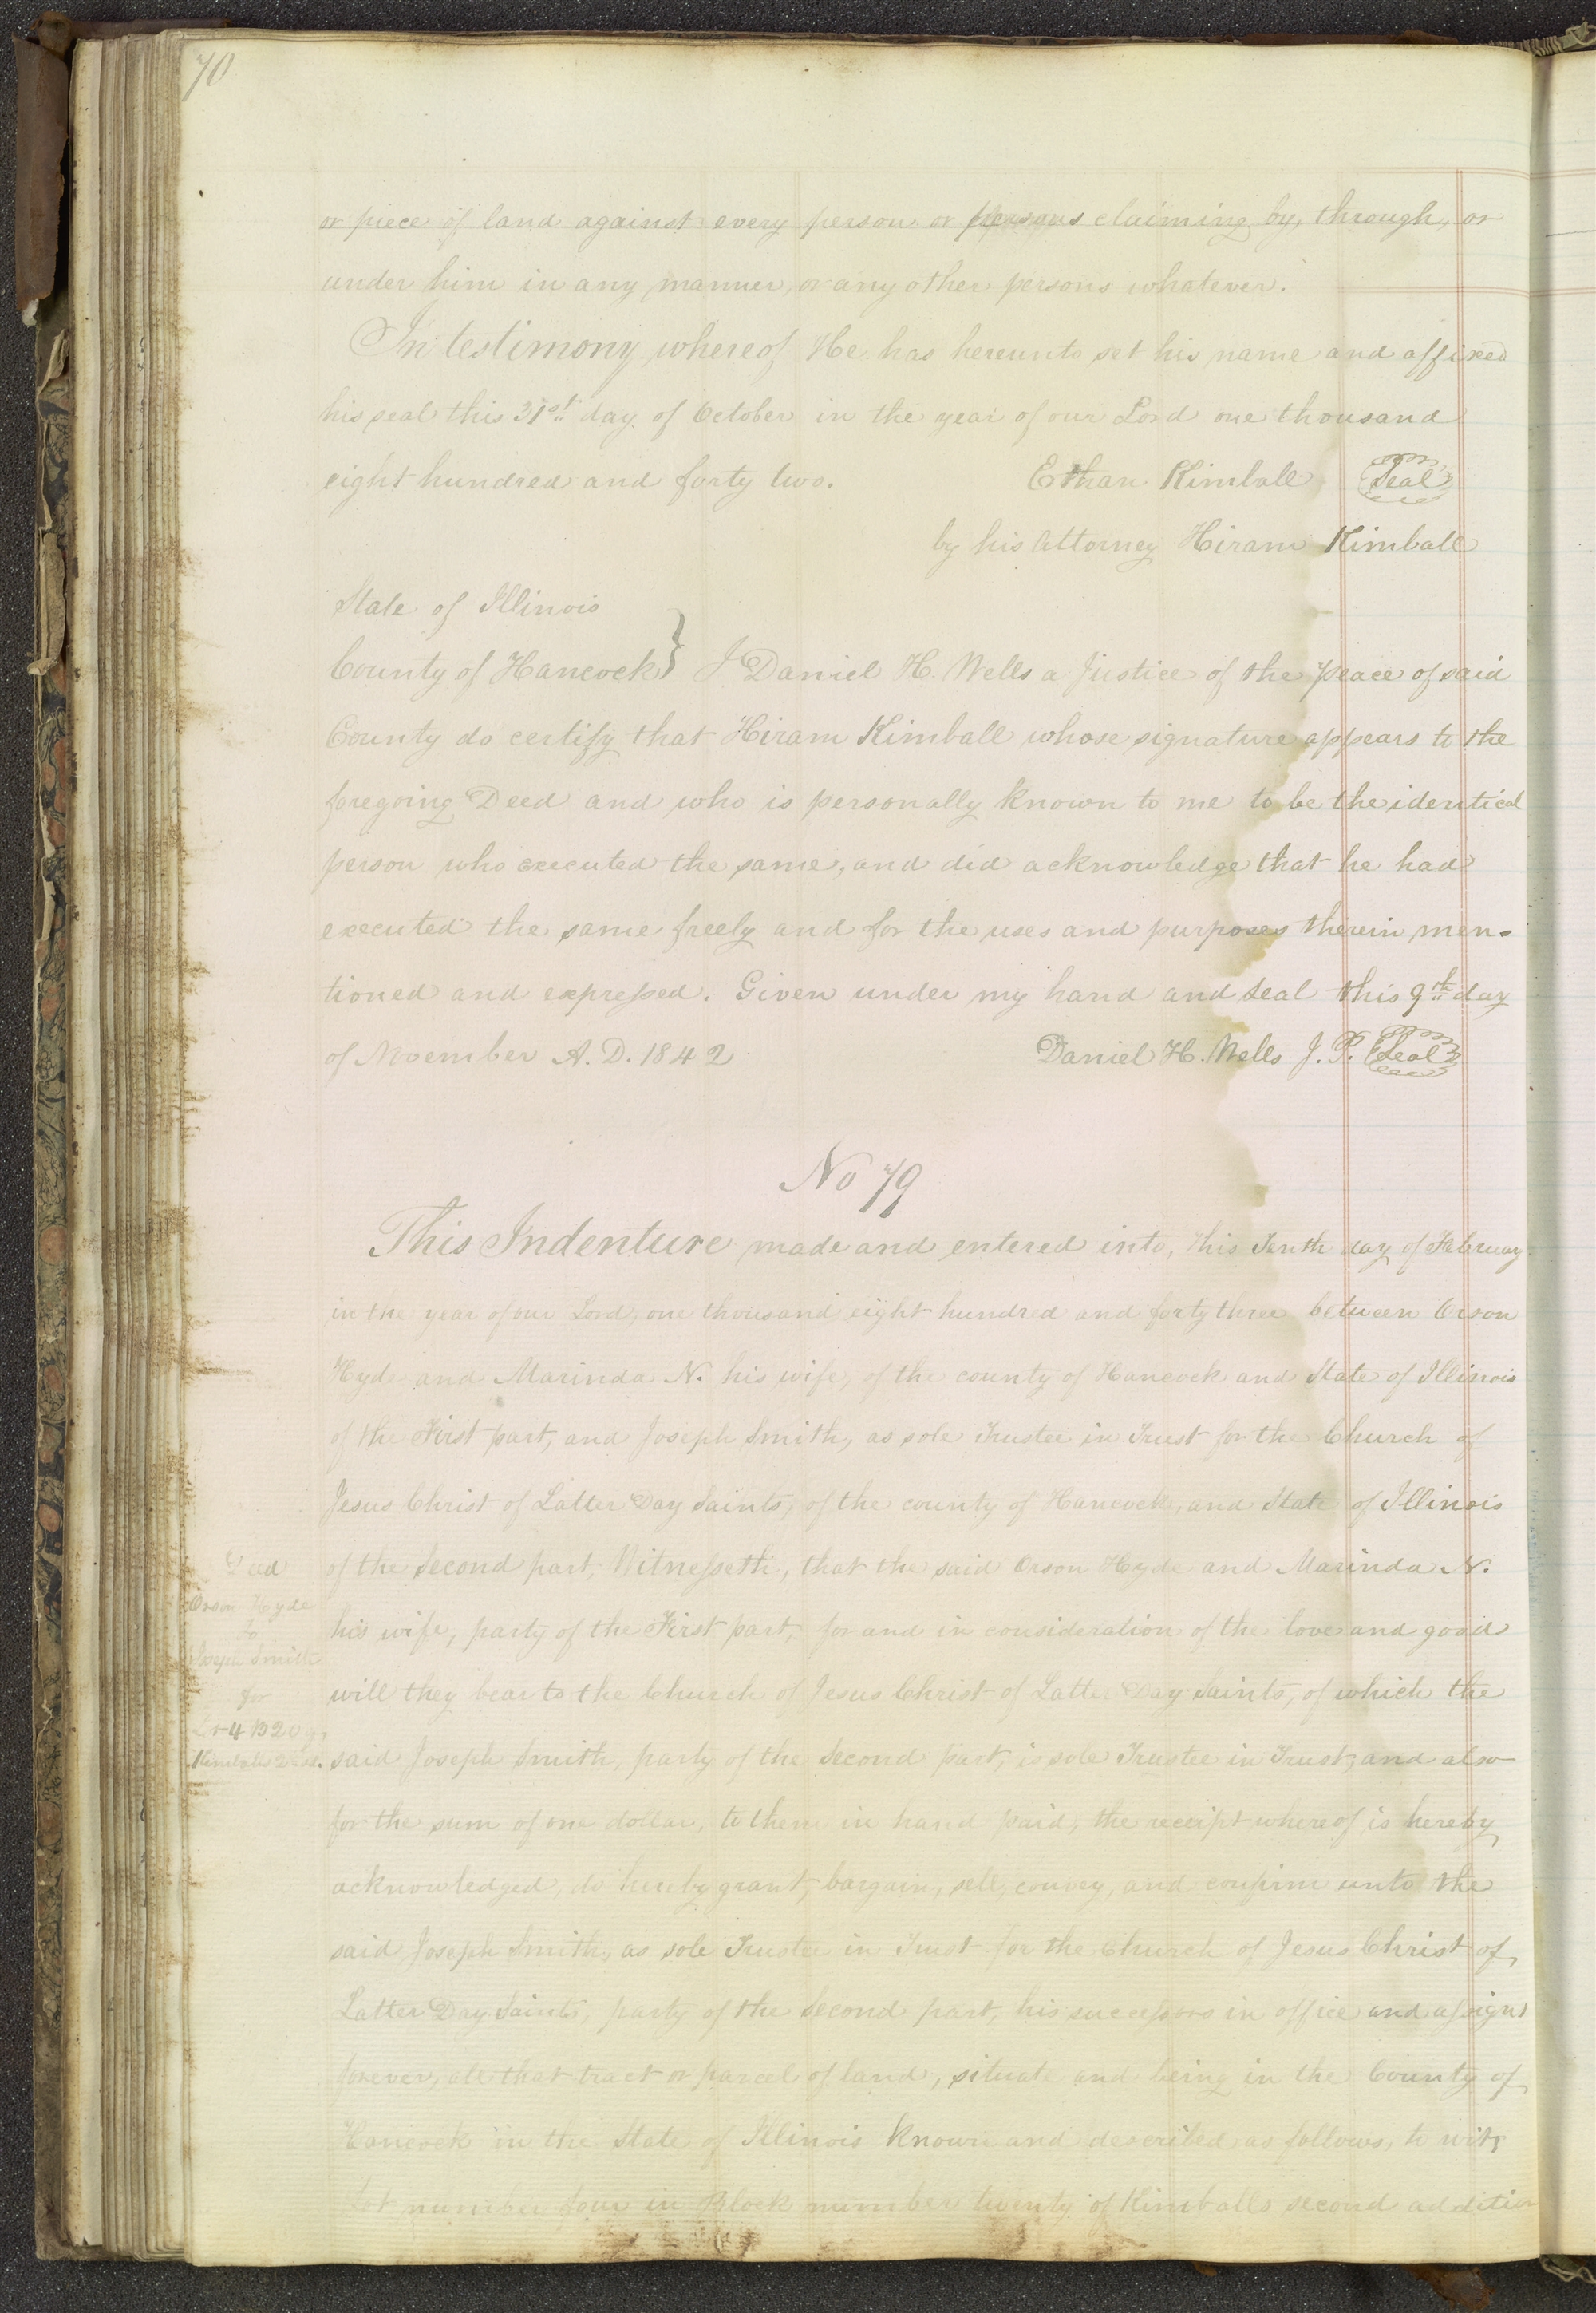 70
or piece of land against every person or persons claiming by, through, or
under him in any manner, or any other persons whatever.
In testimony whereof He has hereunto set his name and affixed
his seal this 31st day of October in the year of our Lord one thousand
eight hundred and forty two. Ethan Kimball Seal
by his Attorney Hiram Kimball
State of Illinois
County of Hancock } I Daniel H. Wells a Justice of the peace of said
County do certify that Hiram Kimball whose signature appears to the
foregoing Deed and who is personally known to me to be the identical
person who executed the same, and did acknowledge that he had
executed the same freely and for the uses and purposes therein men-
tioned and expressed. Given under my hand and seal this 9th day
of November A. D. 1842 Daniel H. Wells J. P. Seal
No 79
This Indenture made and entered into, this Tenth day of February
in the year of our Lord, one thousand eight hundred and forty three between Orson
Hyde and Marinda N. his wife, of the county of Hancock and State of Illinois
of the First part, and Joseph Smith, as sole Trustee in Trust for the Church of
Jesus Christ of Latter Day Saints, of the county of Hancock, and State of Illinois
of the Second part, Witnesseth, that the said Orson Hyde and Marinda N.
his wife, party of the First part, for and in consideration of the love and good
will they bear to the Church of Jesus Christ of Latter Day Saints, of which the
said Joseph Smith, party of the Second part, is sole Trustee in Trust, and also
for the sum of one dollar, to them in hand paid, the receipt whereof is hereby
acknowledged, do hereby grant, bargain, sell, convey, and confirm unto the
said Joseph Smith, as sole Trustee in Trust for the Church of Jesus Christ of
Latter Day Saints, party of the Second part, his successors in office and assigns
forever, all that tract or parcel of land, situate and being in the County of
Hancock in the State of Illinois known and described as follows, to wit,
Lot number four in Block number twenty of Kimballs second addition
Deed
Orson Hyde
to
Joseph Smith
for
Lot 4 B 20
Kimballs 2d